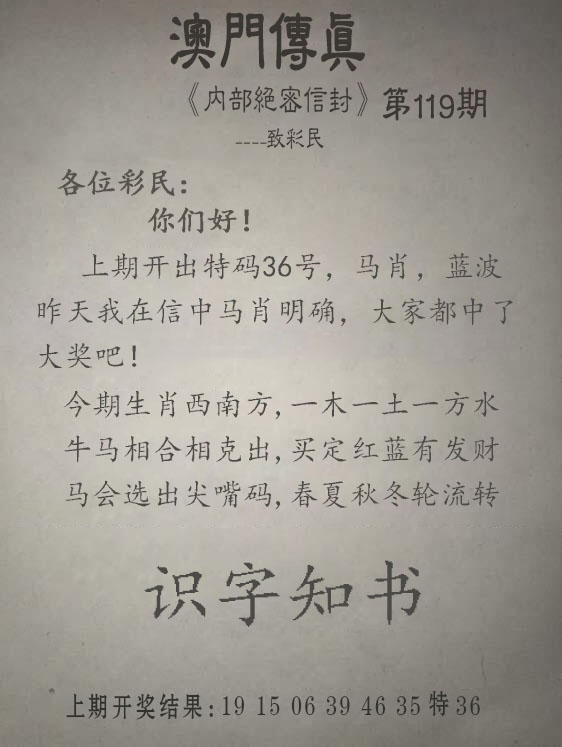 澳門傳眞
《内部絕密信封》第119期
----致彩民
各位彩民：
你们好！
上期开出特码36号，马肖，蓝波
昨天我在信中马肖明确，大家都中了
大奖吧！
今期生肖西南方,一木一土一方水
牛马相合相克出,买定红蓝有发财
马会选出尖嘴码,春夏秋冬轮流转
识字知书
上期开奖结果:19 15 06 39 46 35 特 36